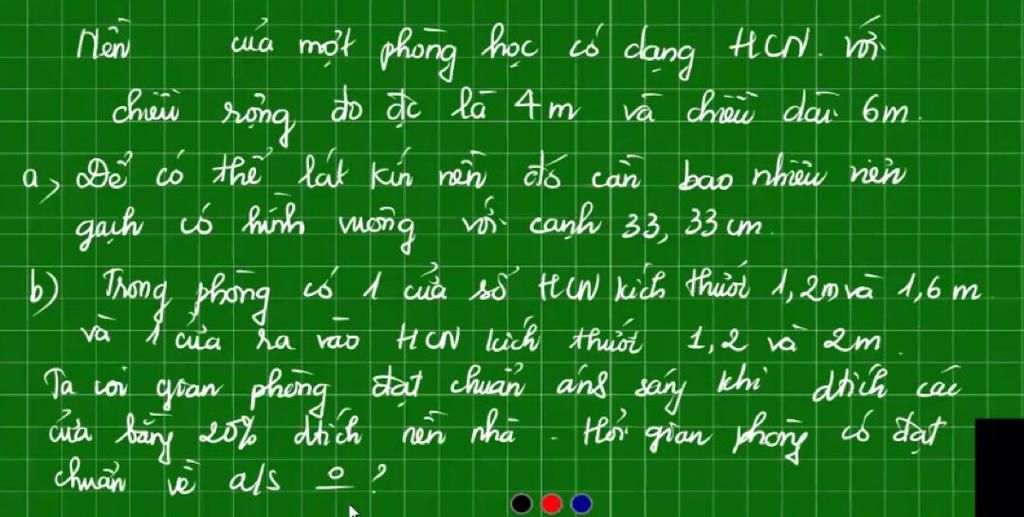 Nền của một phòng học có dạng HCN. với
chiều rộng đo đc là 4m và chiều dài 6m.
a, Để có thể lát kín nền đó cần bao nhiêu viên
gạch có hình vuông với cạnh 33,33 cm.
b) Trong phòng có 1 cửa sổ HCN kích thước 1,2m và 1,6 m
và 1 cửa ra vào HCN kích thước 1,2 và 2m.
Ta coi gian phòng đạt chuẩn áns sáng khi dtích các
cửa bằng 20% dtích nền nhà. Hỏi gian phòng có đạt
chuẩn về a/s o?